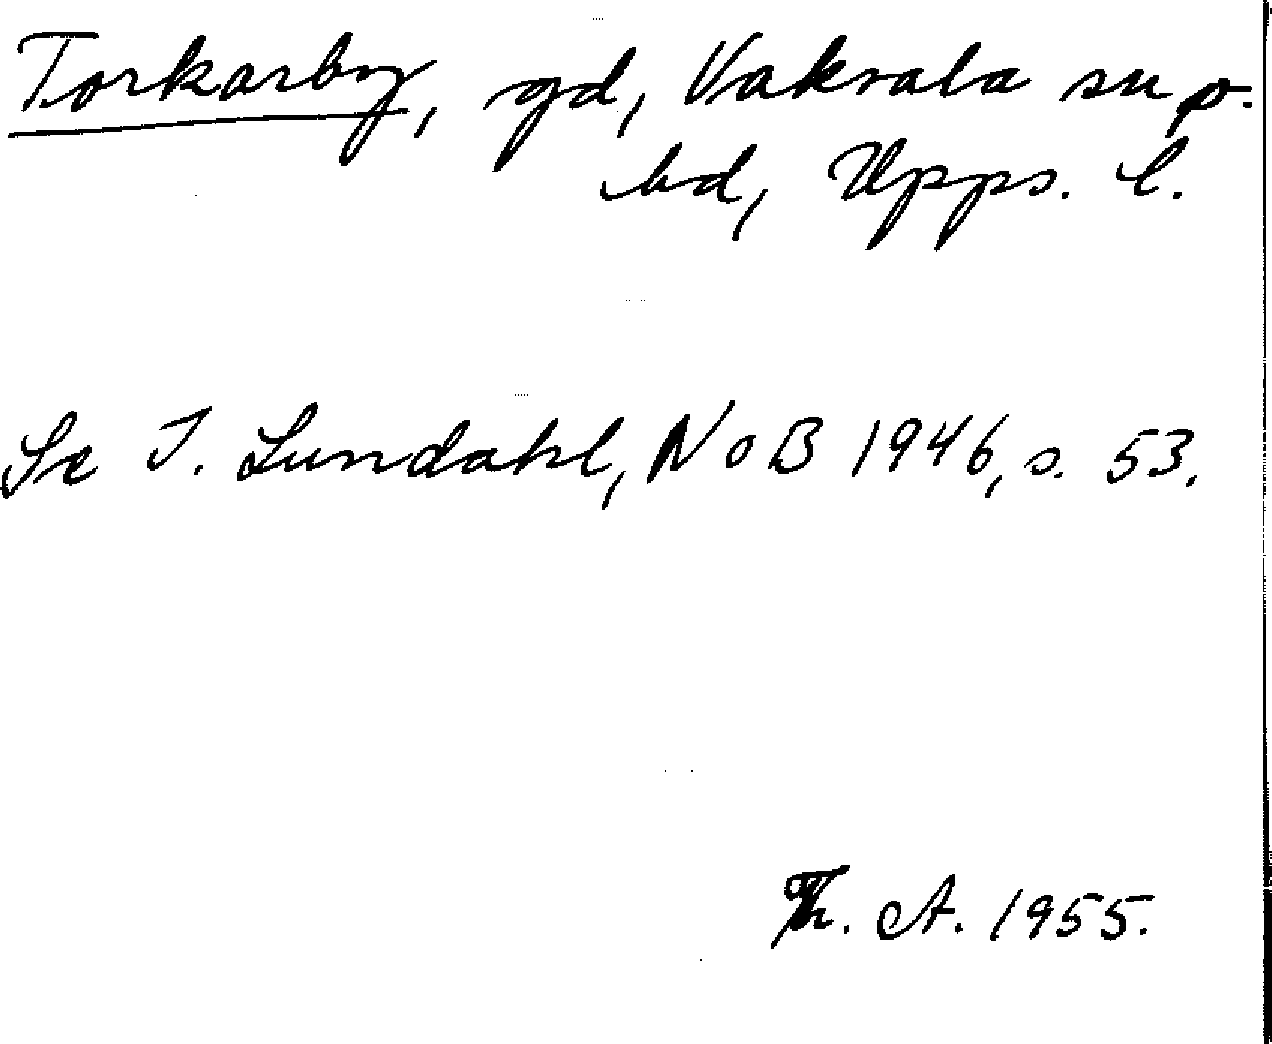 Torkarby, gd, Vaksala sn o.
hd, Upps. l.
Se I. Lundahl, NoB 1946, s. 53.
Th. A. 1955.